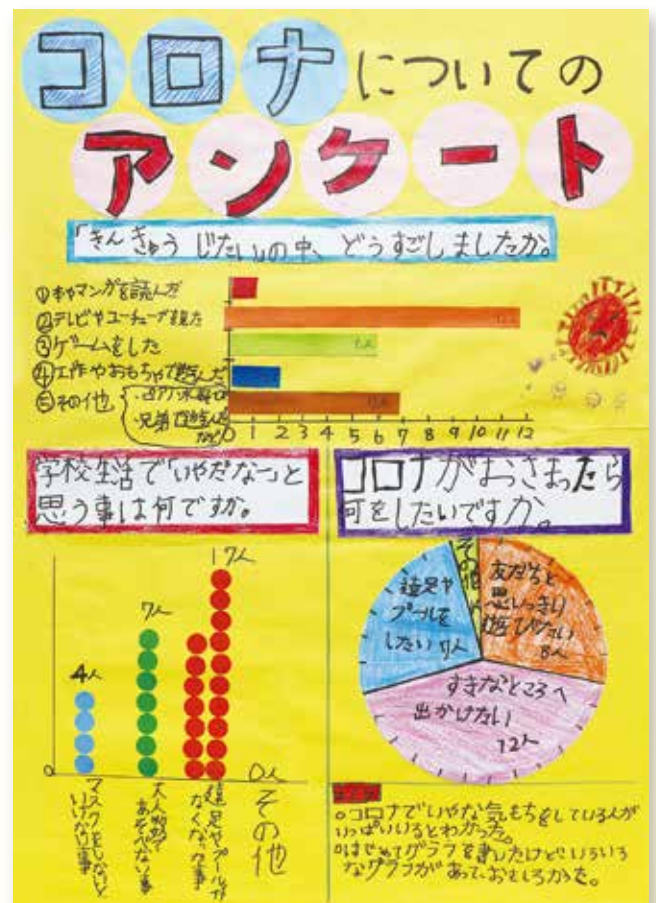 コロナについての
アンケート
「きんきゅうじたい」の中、どうすごしましたか。
①本やマンガを読んだ
②テレビやユーチューブを見た
③ゲームをした
④工作やおもちゃで遊んだ
⑤その他
兄弟で遊んだ
など
0 1 2 3 4 5 6 7 8 9 10 11 12
学校生活で「いやだなー」と
思う事は何ですか。
4人
7人
17人
0人
0
マスクをしないと
いけない事
大人数で
あそべない事
遠足やプールが
なくなった事
その他
コロナがおさまったら
何をしたいですか。
その他
友だちと
思いっきり
遊びたい
8人
すきなところへ
出かけたい
12人
遠足や
プールを
したい 7人
○コロナでいやな気もちをしている人が
いっぱいいるとわかった。
○はじめてグラフを書いたけどいろいろ
なグラフがあって、おもしろかった。